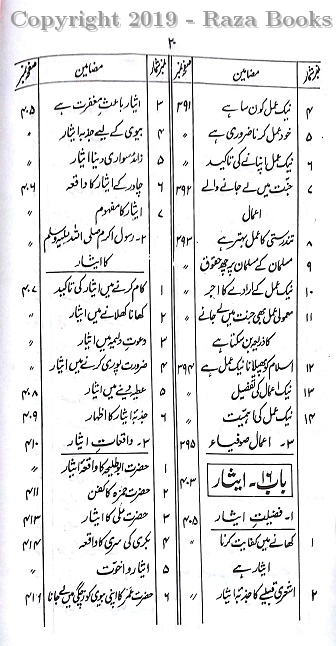 Copyright 2019 - Raza Books
۲۰
نمبر شمار مضامین صفحہ نمبر
۴ نیک عمل کون سا ہے ۳۹۱
۵ خود عمل کرنا ضروری ہے "
۶ نیک عمل اپنانے کی تاکید "
۷ جنت میں لے جانے والے ۳۹۲
اعمال
۸ تندرستی کا عمل بہتر ہے ۳۹۳
۹ مسلمان کے مسلمان پر چھ حقوق "
۱۰ نیک عمل کے ارادے کا اجر "
۱۱ معمولی عمل بھی جنت میں لے جانے
کا ذریعہ بن سکتا ہے "
۱۲ اسلام کو پھیلانا نیک عمل ہے ۳۹۴
۱۳ نیک اعمال کی تفصیل "
۱۴ نیک عمل کی اہمیت "
۳- اعمال صوفیاء ۳۹۵
باب ۱۶- ایثار ۴۰۳
۱- فضیلت ایثار ۴۰۵
۱ کھانے میں کفایت کرنا
ایثار ہے "
۲ اشعری قبیلے کا جذبۂ ایثار "
نمبر شمار مضامین صفحہ نمبر
۳ ایثار باعث مغفرت ہے ۴۰۵
۴ بیوی کے لیے جذبہ ایثار "
۵ زائد سواری دینا ایثار "
۶ چادر کے ایثار کا واقعہ ۴۰۶
۷ ایثار کا مفہوم "
۲- رسول اکرم صلی اللہ علیہ وسلم
کا ایثار
۱ کام کرنے میں ایثار کی تاکید ۴۰۷
۲ کھانا کھلانے میں ایثار "
۳ دعوت ولیمہ میں ایثار "
۴ ضرورت پوری کرنے میں ایثار "
۵ عطیہ دینے میں ایثار ۴۰۸
۶ جذبۂ ایثار کا اظہار ۴۰۹
۳- واقعات ایثار ۴۱۰
۱ حضرت ابو طلحہ کا واقعۂ ایثار "
۲ حضرت حمزہ کا کفن ۴۱۱
۳ حضرت علی کا ایثار ۴۱۳
۴ بکری کی سری کا واقعہ ۴۱۴
۵ ایثار و اخوت "
۶ حضرت عمر کا اپنی بیوی کو زچگی میں لے جانا ۴۱۶